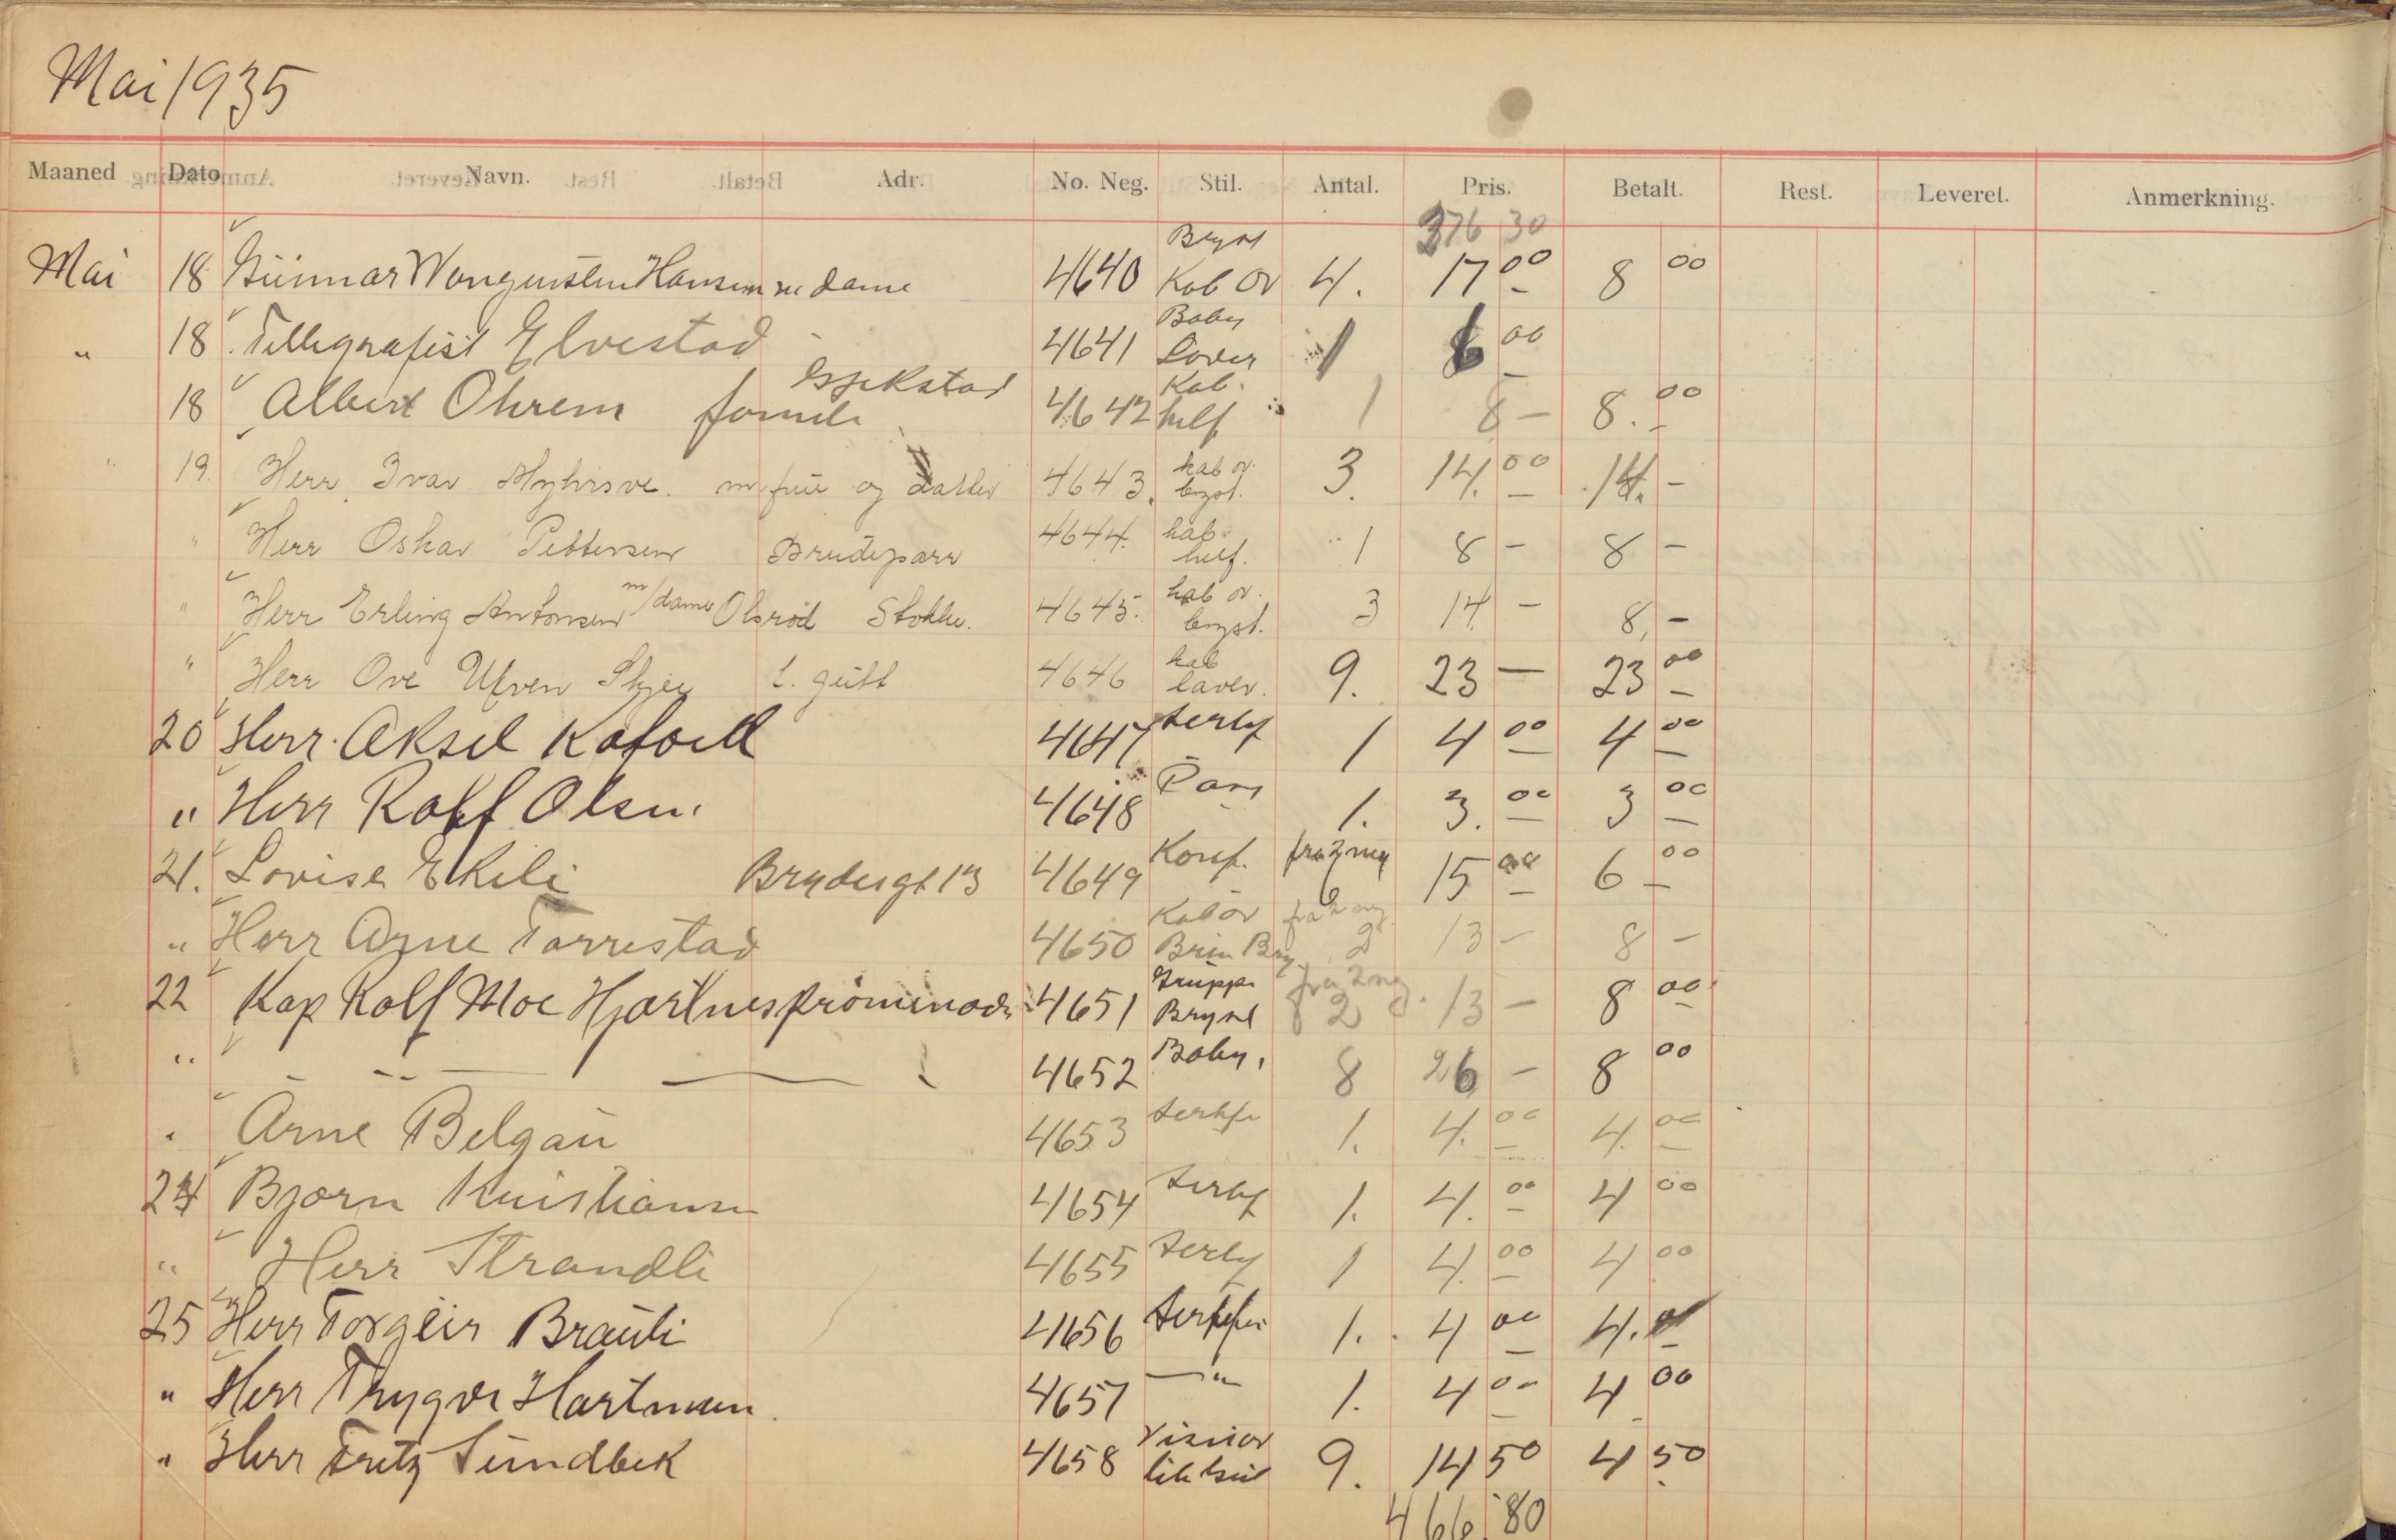 Mai 1935
Maaned Dato Navn. Adr. No. Neg. Stil. Antal. Pris. Betalt. Rest. Leveret. Anmerkning.
376 30
Bryst
Mai 18 Gunnar Wangensten Hansen m dame 4640 Kab ov 4. 17 00 8 00
Baby
" 18. Tellegrafist Elvestad 4641 1 6 00
Kab.
18 Albert Ohrem 4642 helf 1 8 – 8. 00
" 19. Herr Ivar m/ frue og datter 4643. kab ov. bryst. 3. 14. 00 14. –
" Herr Oskar Pettersen Brudeparr 4644. kab. helf. 1 8 – 8 –
" Herr Erling Antonsen m/dame Olsröd Stokke. 4645. kab ov. bryst. 3 14 – 8, –
" Herr Ove l. gutt 4646 kab 9. 23 – 23 00
20 Herr Aksel 4647 1 4 00 4 00
" Herr Rolf Olsen. 4648 Pas 1. 3. 00 3 00
21. Lovise Ekeli Brydesgt 13 4649 Konf. fra 2 neg 6 15 00 6 00
" Herr Arne Torrestad 4650 Kab ov fra 2 neg 2 13 – 8 –
22 Kap Rolf Moe Hjartnespromenade 4651 Gruppe Bryst fra 2 neg. 2 13 – 8 00
" – " – 4652 Baby. 8 26 – 8 00
" Arne Belgau 4653 1. 4. 00 4. 00
24 Bjørn Kristiansen 4654 1. 4. 00 4 00
" Herr Strandli 4655 1 4. 00 4 00
25 Herr Torgeir Brauti 4656 1. 4 00 4. 00
" Herr Trygve Hartman 4657 – " 1. 4 00 4 00
" Herr Fritz Sundbek 4658 9. 14 50 4 50
466.80